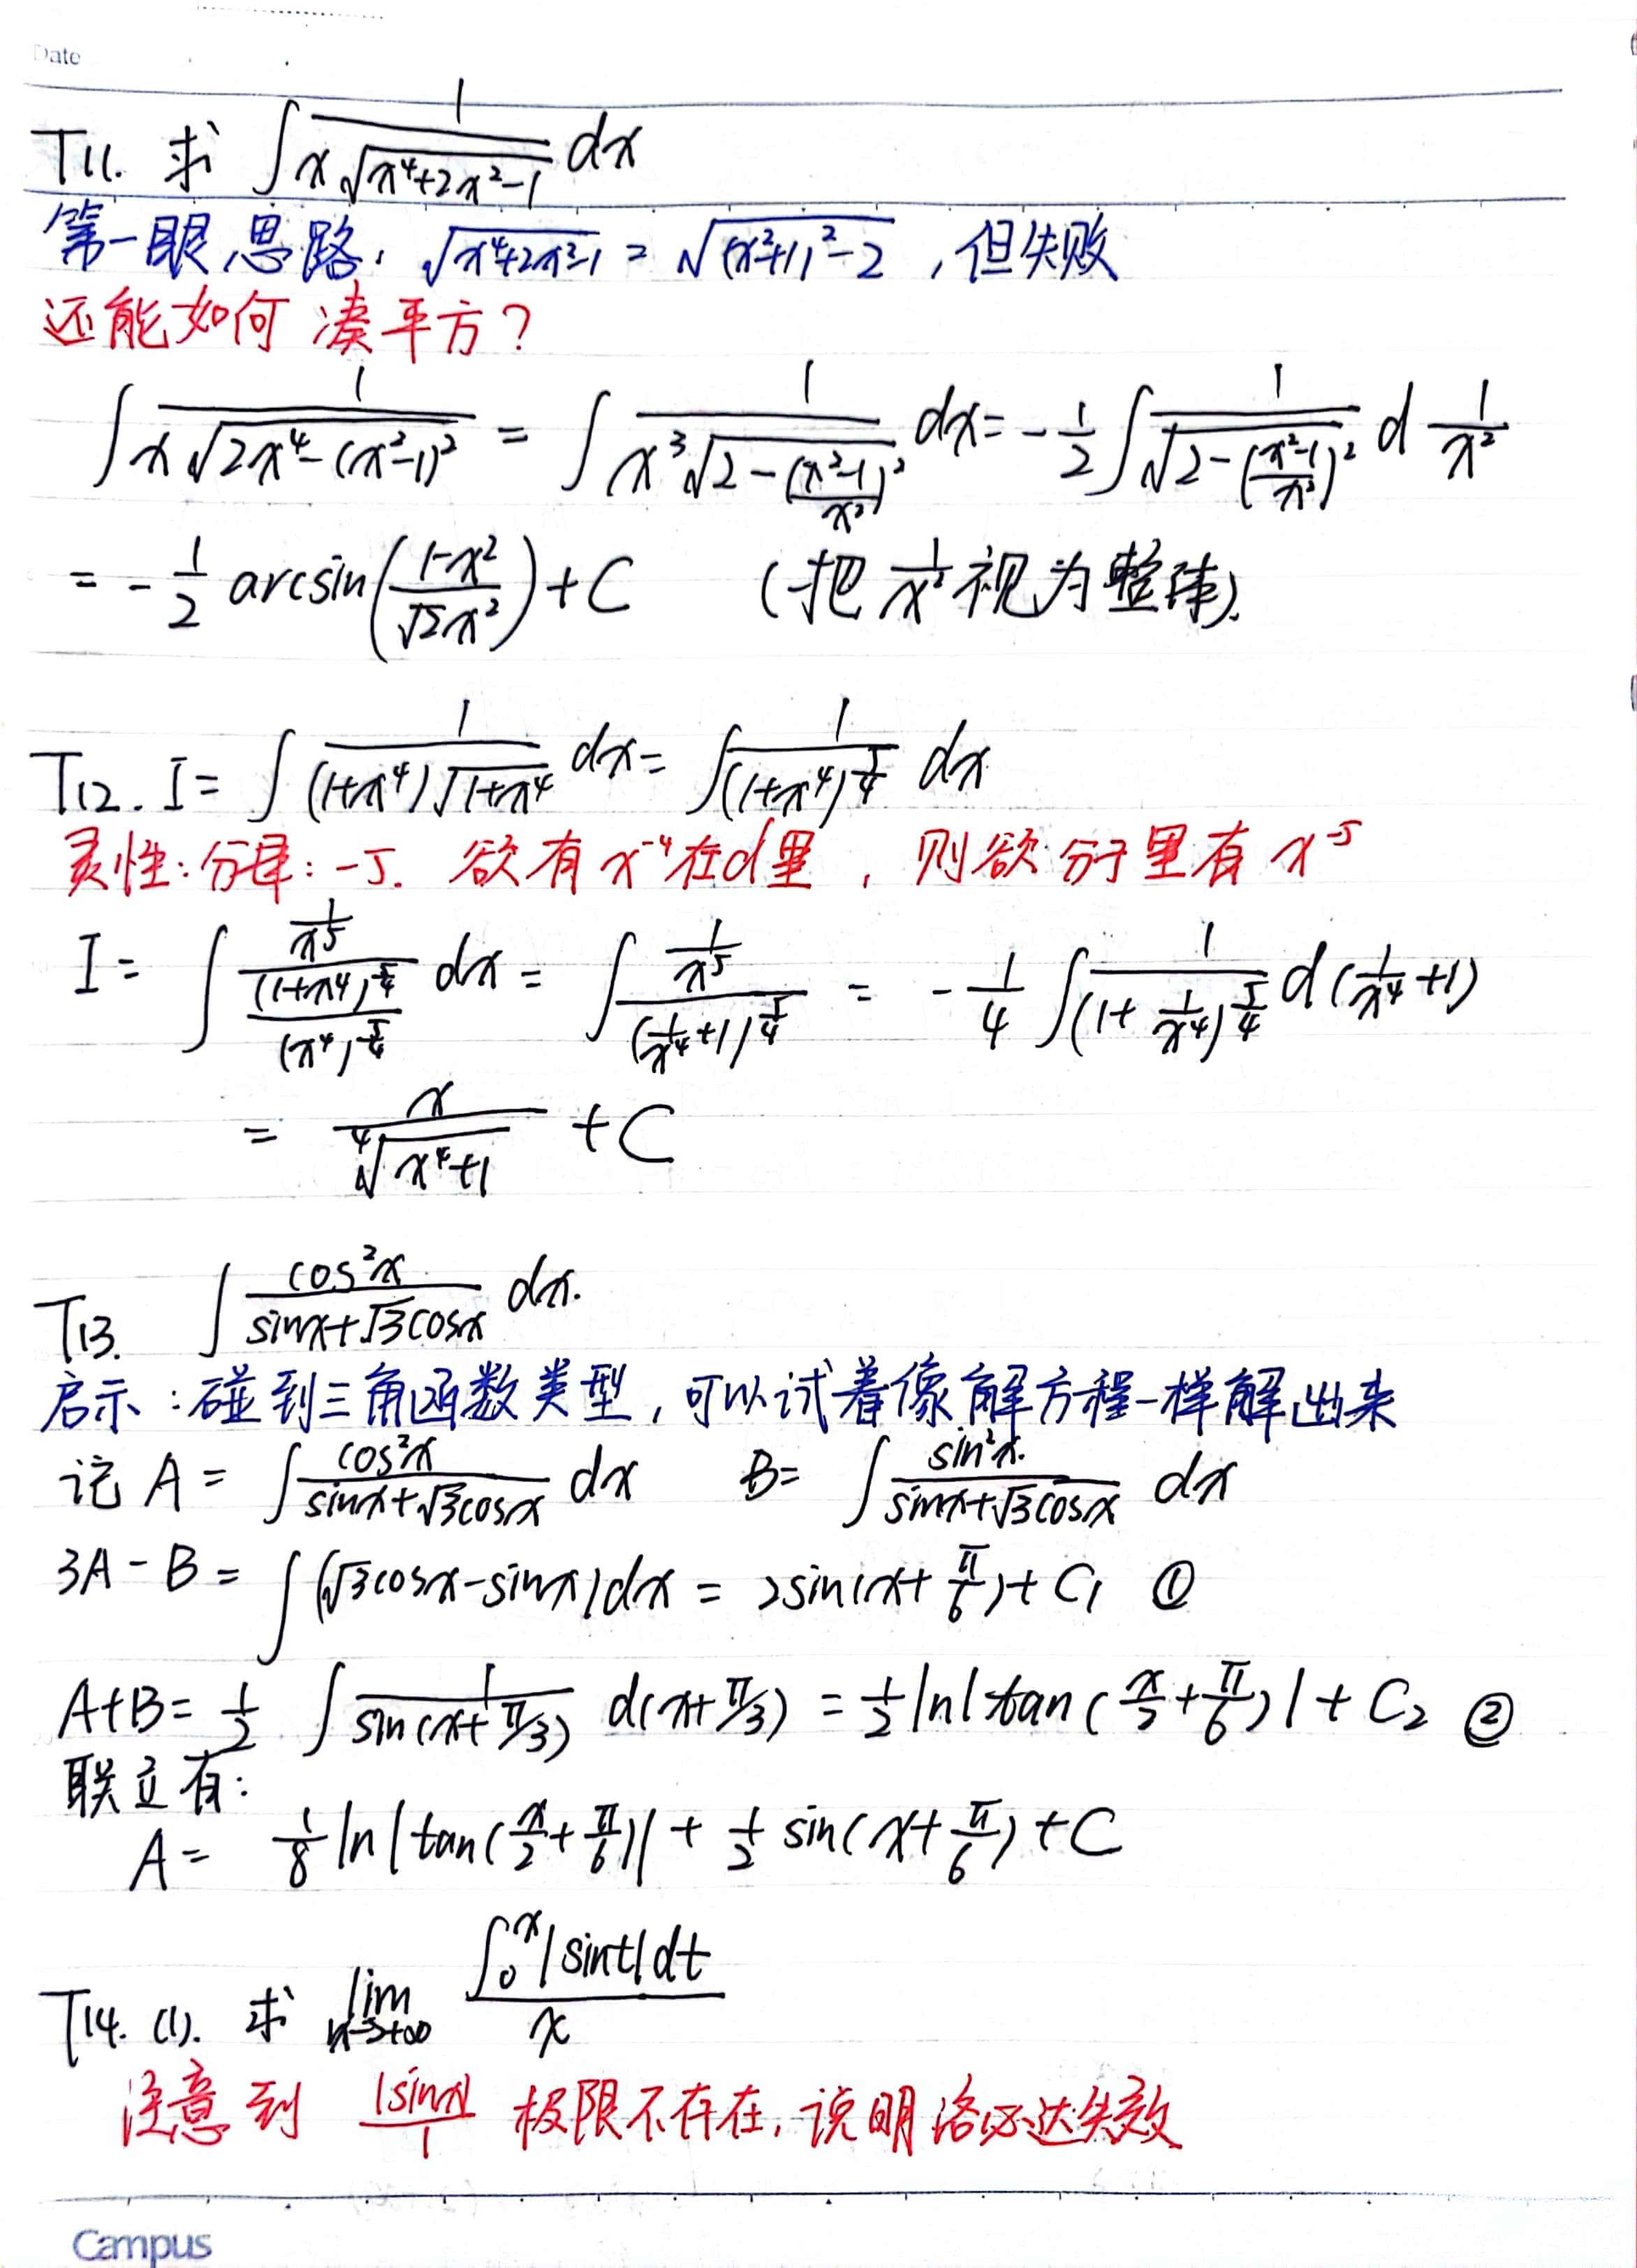 Date
T11. 求 ∫ 1/(x√(x⁴+2x²-1)) dx
第一眼思路: √(x⁴+2x²-1) = √((x²+1)²-2) , 但失败
还能如何凑平方?
∫ 1/(x√(2x⁴-(x²-1)²)) = ∫ 1/(x³√(2-((x²-1)/x²)²)) dx = -1/2 ∫ 1/√(2-((x²-1)/x²)²) d 1/x²
= -1/2 arcsin((1-x²)/(√2x²)) + C (把 1/x² 视为整体).
T12. I = ∫ 1/((1+x⁴)√(1+x⁴)) dx = ∫ 1/(1+x⁴)^(5/4) dx
灵性: 分母: -5. 欲有 x⁻⁴ 在d里 , 则欲分子里有 x⁻⁵
I = ∫ (1/x⁵)/((1+x⁴)^(5/4)/(x⁴)^(5/4)) dx = ∫ (1/x⁵)/(1/x⁴+1)^(5/4) = -1/4 ∫ 1/(1+1/x⁴)^(5/4) d(1/x⁴+1)
= x/⁴√(x⁴+1) + C
T13. ∫ cos²x/(sinx+√3cosx) dx.
启示: 碰到三角函数类型, 可以试着像解方程一样解出来
记 A = ∫ cos²x/(sinx+√3cosx) dx B = ∫ sin²x/(sinx+√3cosx) dx
3A - B = ∫ (√3cosx-sinx)dx = 2sin(x+π/6) + C₁ ①
A+B = 1/2 ∫ 1/sin(x+π/3) d(x+π/3) = 1/2 ln|tan(x/2+π/6)| + C₂ ②
联立有:
A = 1/8 ln|tan(x/2+π/6)| + 1/2 sin(x+π/6) + C
T14. (1). 求 lim x→+∞ ∫₀ˣ|sint|dt / x
注意到 |sinx|/1 极限不存在, 说明洛必达失效
Campus